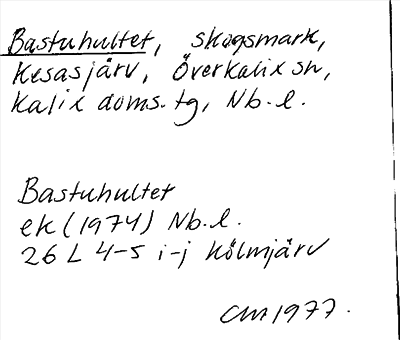 Bastuhultet, skogsmark,
Kesasjärv, Överkalix sn,
Kalix doms. tg, Nb. l.
Bastuhultet
ek (1974) Nb. l.
26 L 4-5 i-j Kölmjärv
CM 1977.